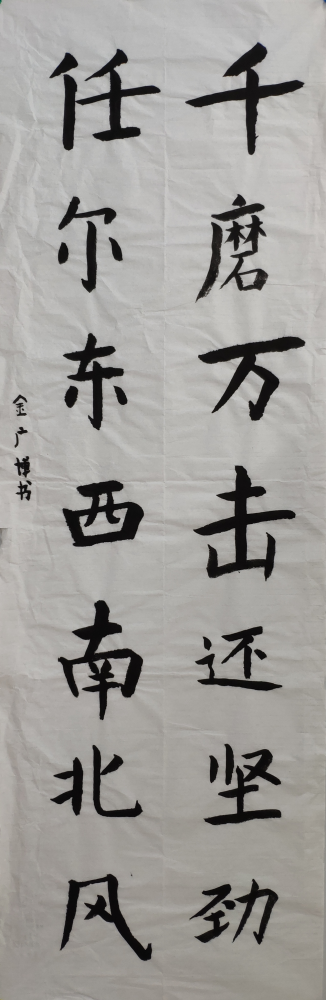 千磨万击还坚劲
任尔东西南北风
金广博书